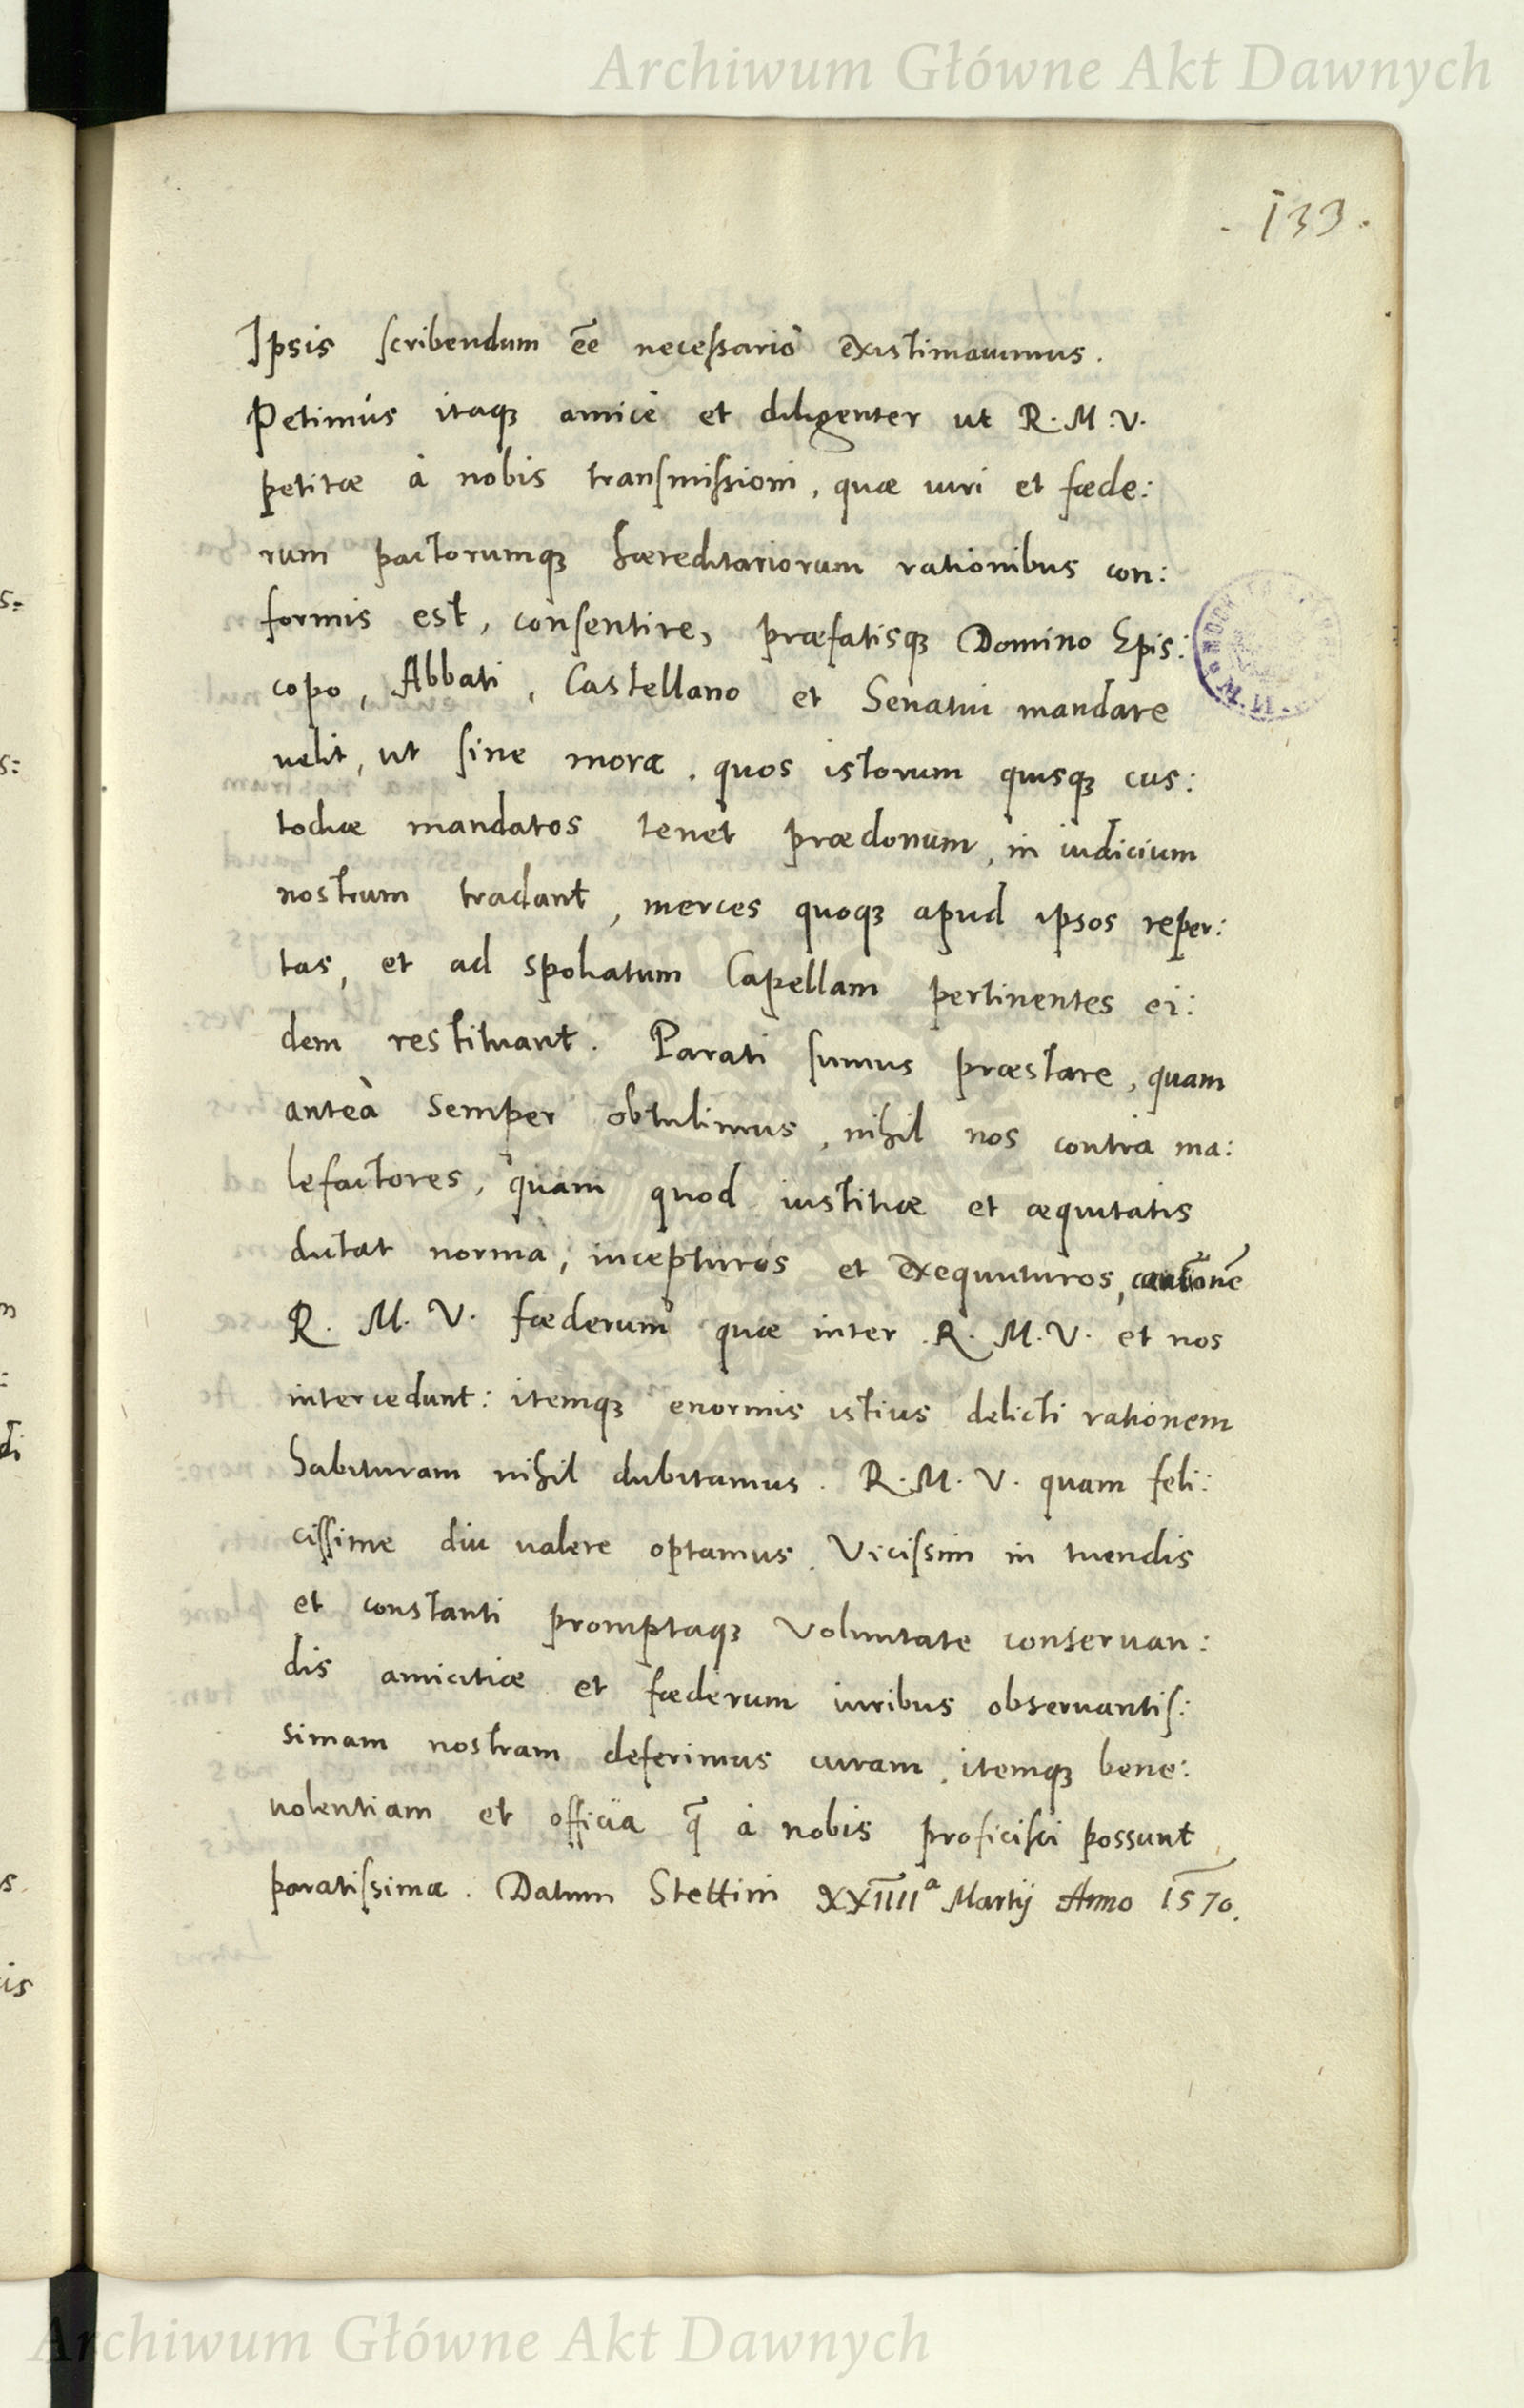 Archiwum Główne Akt Dawnych
. 133 .
Ipsis scribendum eẽ necessariò existimauimus.
Petimus itaqꝫ amicè et diligenter ut R. M. V.
petitæ à nobis transmissioni, quæ iuri et fœde:
rum pactorumqꝫ hæreditariorum rationibus con:
formis est, consentire, præfatisqꝫ Domino Epis:
copo, Abbati, Castellano et Senatui mandare
uelit, ut sine mora, quos istorum quisqꝫ cus:
todiæ mandatos tenet prædonum, in iudicium
nostrum tradant, merces quoqꝫ apud ipsos reper:
tas, et ad spoliatum Capellam pertinentes ei:
dem restituant. Parati sumus præstare, quam
anteà semper obtulimus, nihil nos contra ma:
lefactores, quàm quod iustitiæ et æquitatis
dictat norma, incepturos et exequuturos, cautionẽ
R. M. V. fœderum quæ inter R. M. V. et nos
intercedunt: itemqꝫ enormis istius delicti rationem
habituram nihil dubitamus. R. M. V. quam feli:
cissime diu ualere optamus. Vicissim in tuendis
et constanti promptaqꝫ voluntate conseruan:
dis amicitiæ et fœderum iuribus obseruantis:
simam nostram deferimus curam, itemqꝫ bene:
uolentiam et officia q̃ à nobis proficisci possunt
paratissima. Datum Stettini XXIIIIª Martij Anno 1570.
Archiwum Główne Akt Dawnych